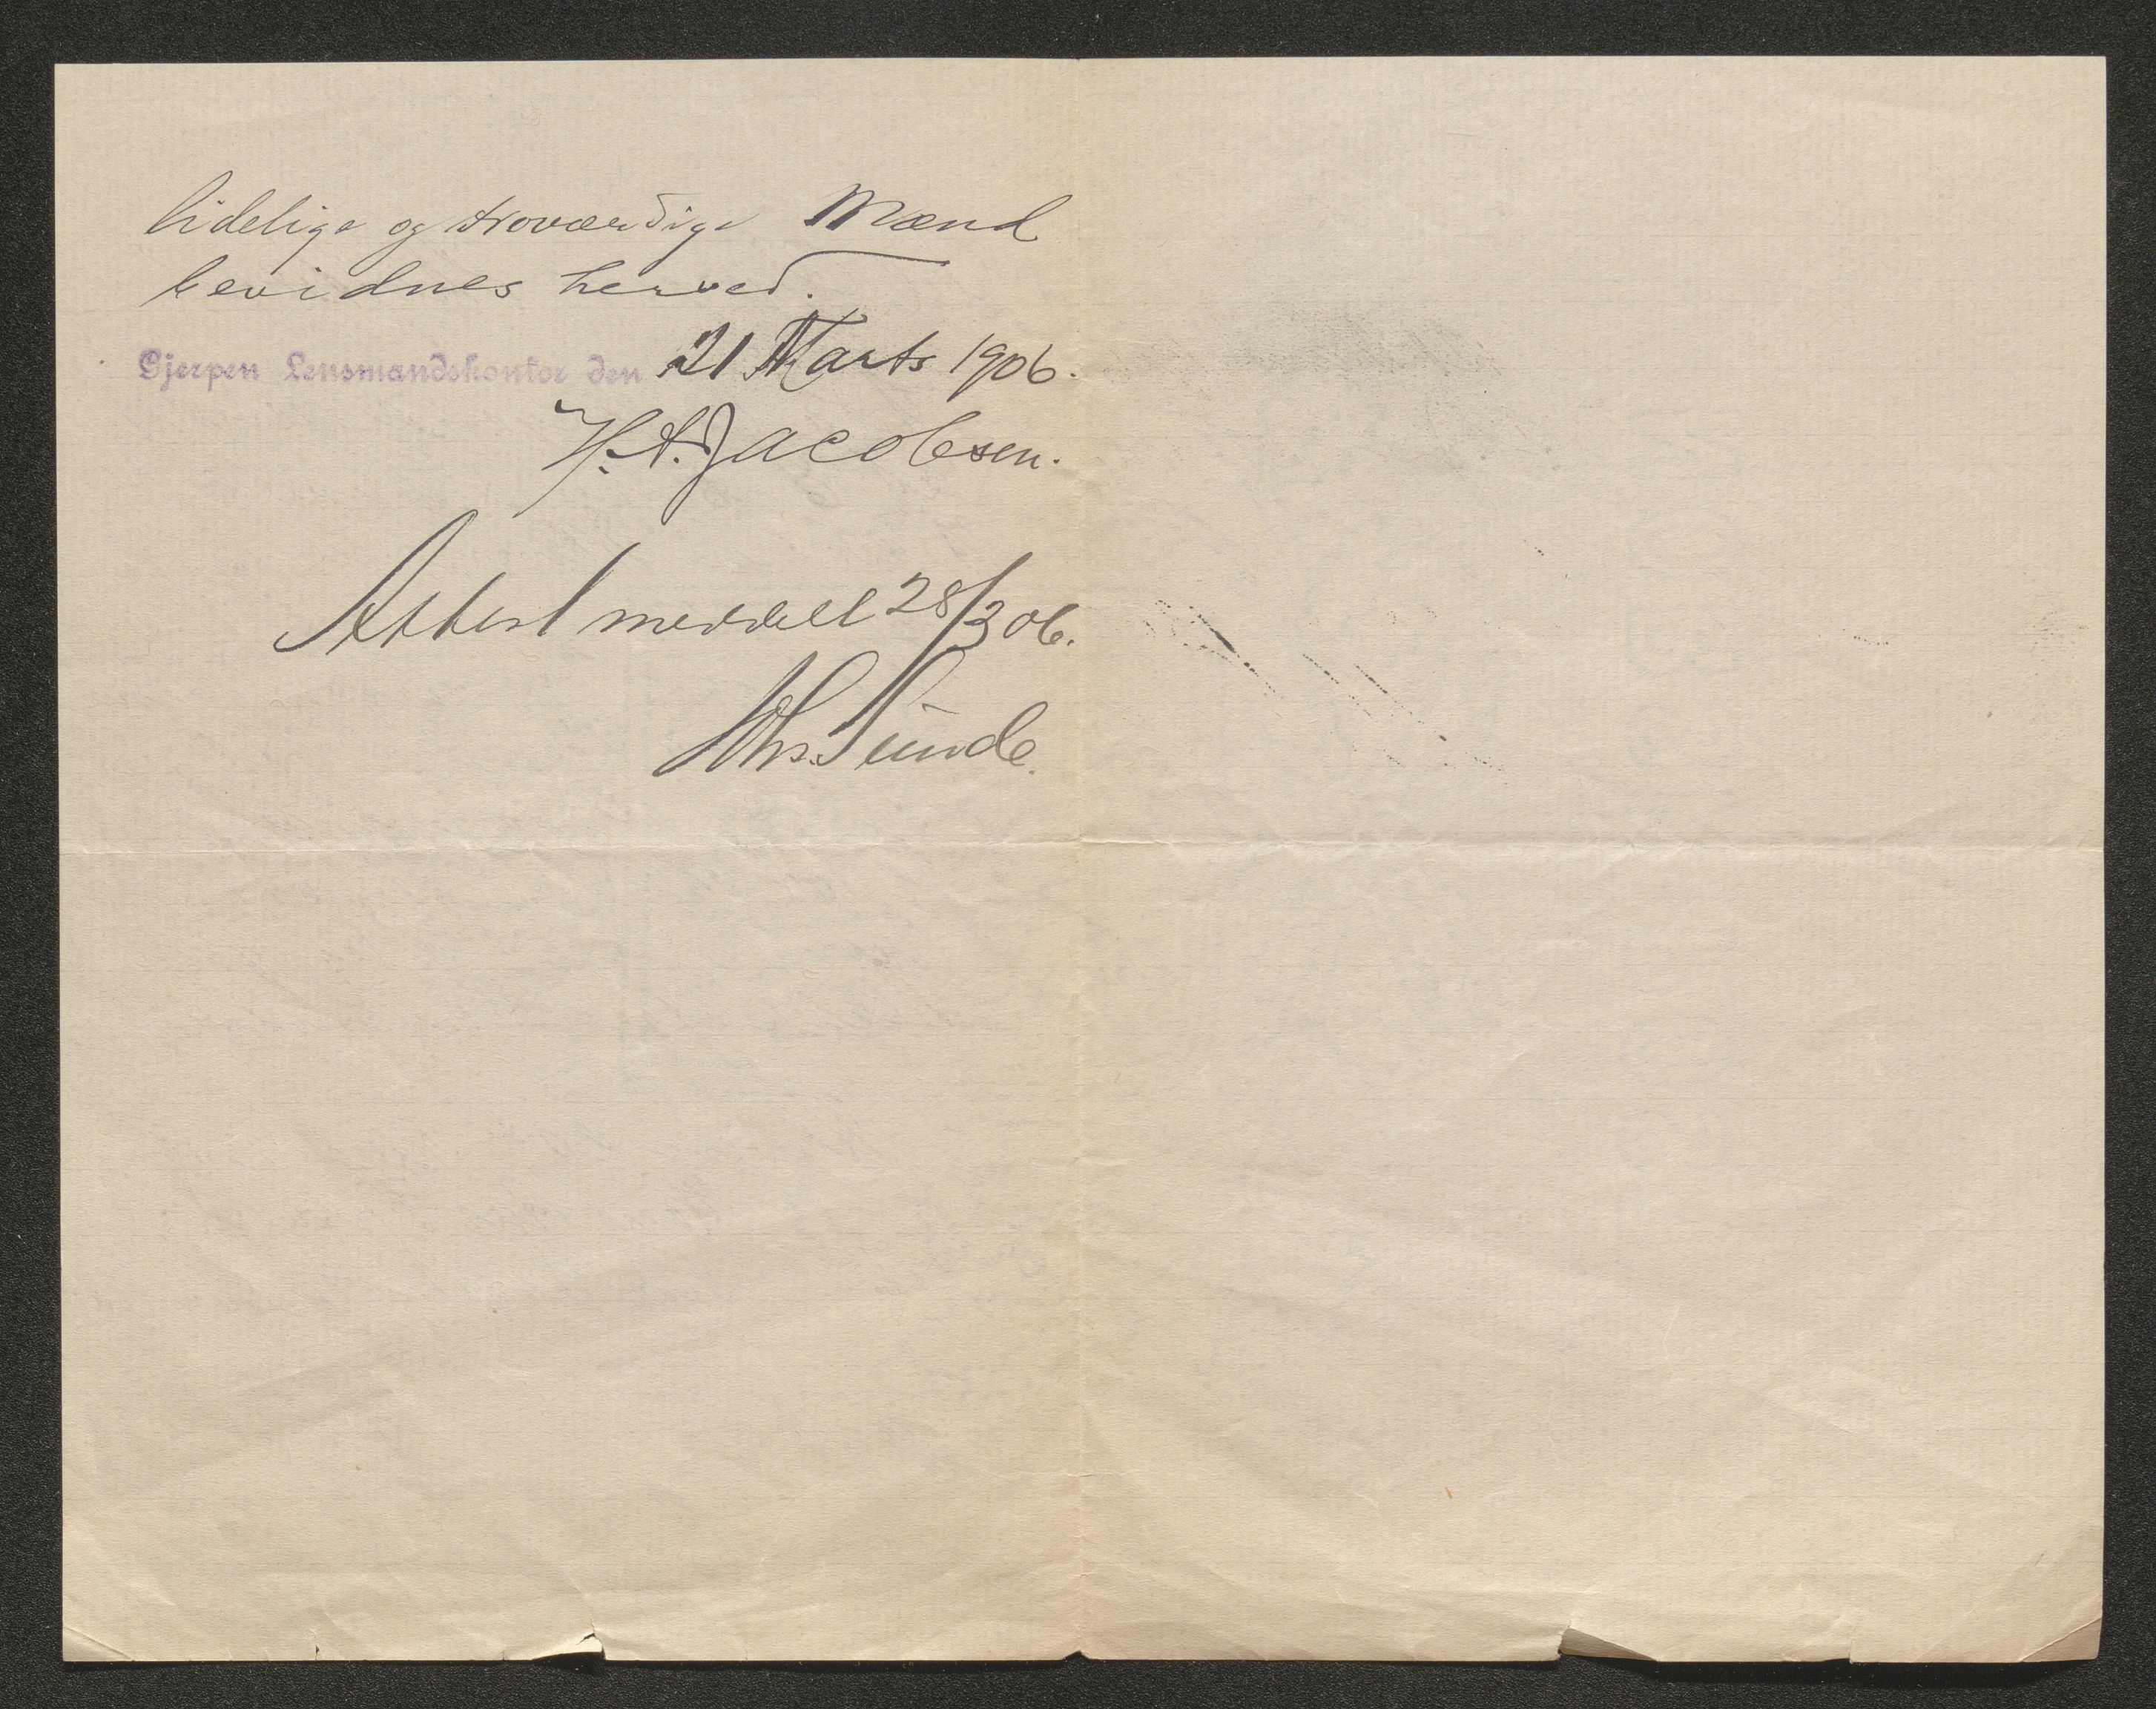 lidelige og troværdige Mænd
bevidnes herved.
Gjerpen Lensmandskontor den 21 Marts 1906.
H. A. Jacobsen.
Attest meddelt 28/3 06.
Chr. Sunde.